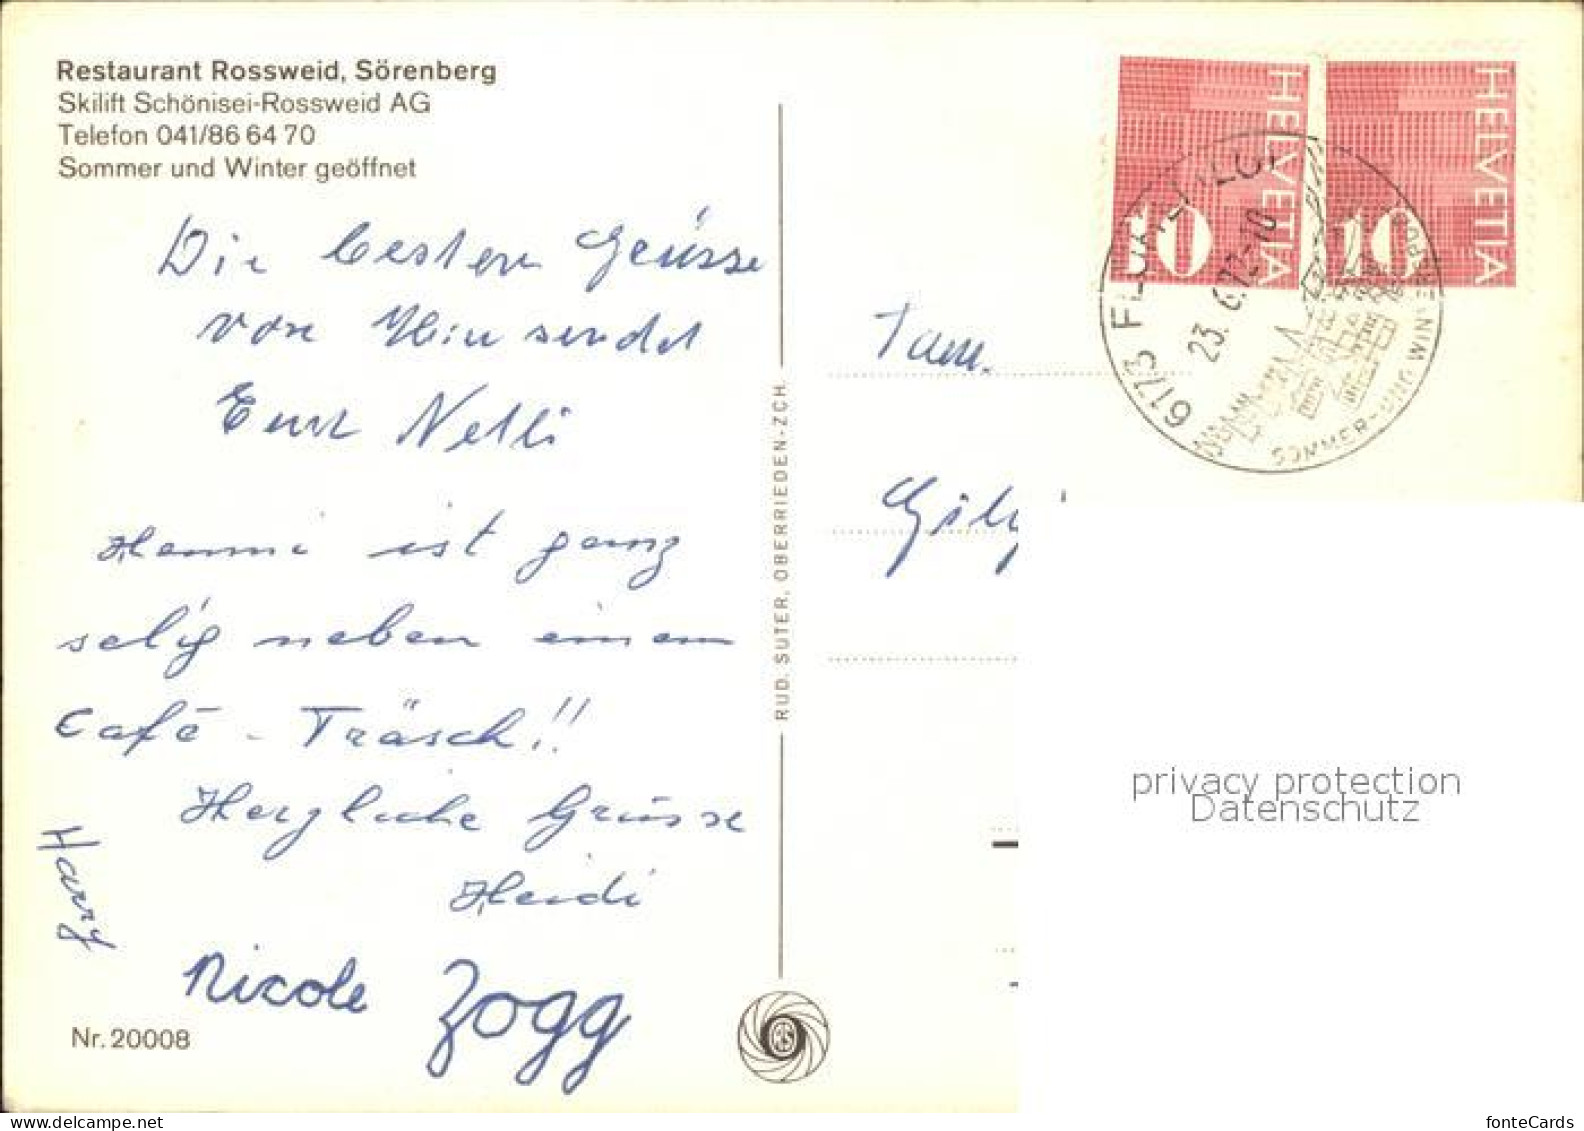 Restaurant Rossweid, Sörenberg
Skilift Schönisei-Rossweid AG
Telefon 041/86 64 70
Sommer und Winter geöffnet
Die besten Grüsse
von Hier sendet
Euer Nelli
Hanni ist ganz
selig neben einem
Café - Träsch!!
Herzliche Grüsse
Heidi
Harry
Nicole Zogg
Nr. 20008
RUD. SUTER, OBERRIEDEN-ZCH.
HELVETIA
10
HELVETIA
10
6173 FLÜHLI LU
23. 6. 72-10
SOMMER- UND WINTERSPOR
Fam.
privacy protection
Datenschutz
fonteCards
delcampe.net